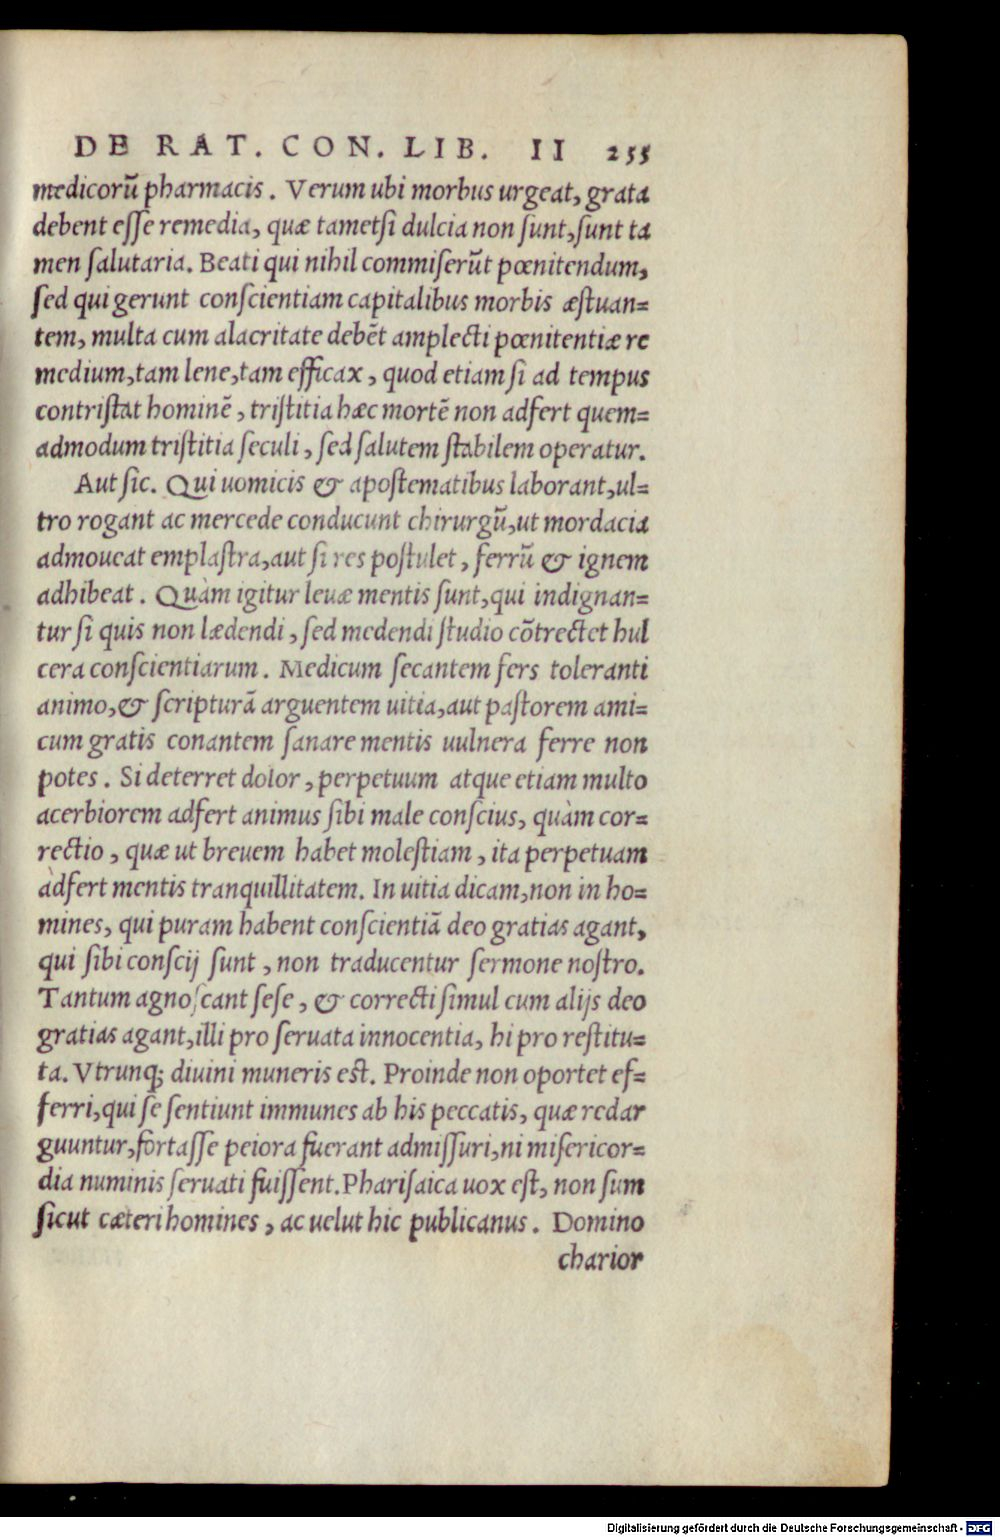 DE RAT. CON. LIB. II 255
medicorũ pharmacis. Verum ubi morbus urgeat, grata
debent esse remedia, quæ tametsi dulcia non sunt, sunt ta
men salutaria. Beati qui nihil commiserũt pœnitendum,
sed qui gerunt conscientiam capitalibus morbis æstuan=
tem, multa cum alacritate debẽt amplecti pœnitentiæ re
medium, tam lene, tam efficax, quod etiam si ad tempus
contristat hominẽ, tristitia hæc mortẽ non adfert quem=
admodum tristitia seculi, sed salutem stabilem operatur.
Aut sic. Qui uomicis & apostematibus laborant, ul=
tro rogant ac mercede conducunt chirurgũ, ut mordacia
admoueat emplastra, aut si res postulet, ferrũ & ignem
adhibeat. Quàm igitur leuæ mentis sunt, qui indignan=
tur si quis non lædendi, sed medendi studio cõtrectet hul
cera conscientiarum. Medicum secantem fers toleranti
animo, & scripturã arguentem uitia, aut pastorem ami=
cum gratis conantem sanare mentis uulnera ferre non
potes. Si deterret dolor, perpetuum atque etiam multo
acerbiorem adfert animus sibi male conscius, quàm cor=
rectio, quæ ut breuem habet molestiam, ita perpetuam
àdfert mentis tranquillitatem. In uitia dicam, non in ho=
mines, qui puram habent conscientiã deo gratias agant,
qui sibi conscij sunt, non traducentur sermone nostro.
Tantum agnoscant sese, & correcti simul cum alijs deo
gratias agant, illi pro seruata innocentia, hi pro restitu=
ta. Vtrunq; diuini muneris est. Proinde non oportet ef=
ferri, qui se sentiunt immunes ab his peccatis, quæ redar
guuntur, fortasse peiora fuerant admissuri, ni misericor=
dia numinis seruati fuissent. Pharisaica uox est, non sum
sicut cæteri homines, ac uelut hic publicanus. Domino
charior
Digitalisierung gefördert durch die Deutsche Forschungsgemeinschaft - DFG